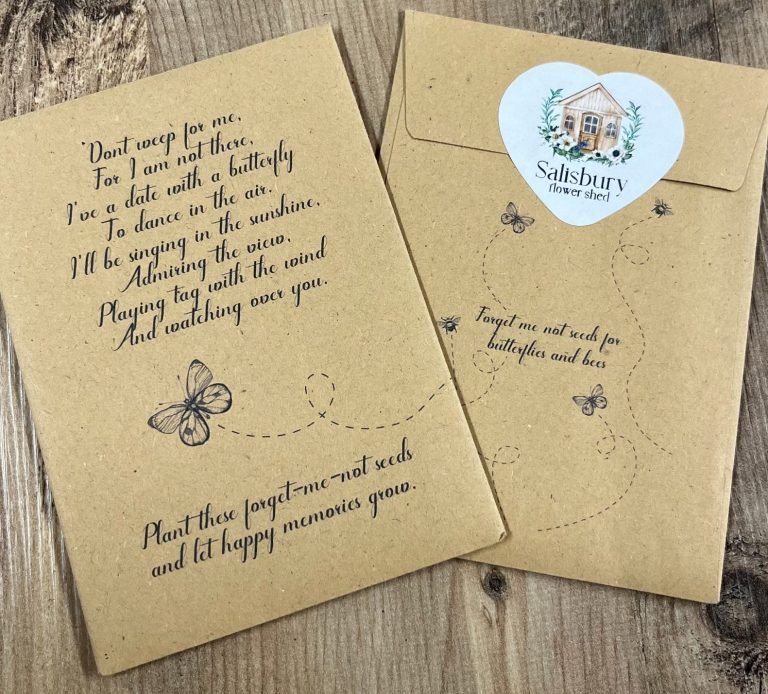 'Dont weep for me,
For I am not there,
I've a date with a butterfly
To dance in the air.
I'll be singing in the sunshine,
Admiring the view,
Playing tag with the wind
And watching over you.
Plant these forget-me-not seeds
and let happy memories grow.
Salisbury
flower shed
Forget me not seeds for
butterflies and bees